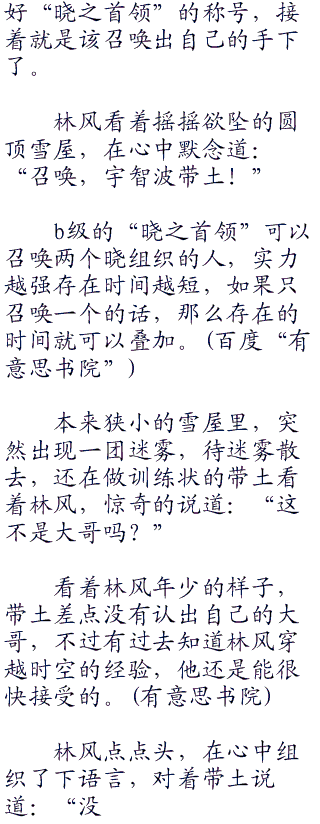 好“晓之首领”的称号，接
着就是该召唤出自己的手下
了。
林风看着摇摇欲坠的圆
顶雪屋，在心中默念道：
“召唤，宇智波带土！”
b级的“晓之首领”可以
召唤两个晓组织的人，实力
越强存在时间越短，如果只
召唤一个的话，那么存在的
时间就可以叠加。(百度“有
意思书院”)
本来狭小的雪屋里，突
然出现一团迷雾，待迷雾散
去，还在做训练状的带土看
着林风，惊奇的说道：“这
不是大哥吗？”
看着林风年少的样子，
带土差点没有认出自己的大
哥，不过有过去知道林风穿
越时空的经验，他还是能很
快接受的。(有意思书院)
林风点点头，在心中组
织了下语言，对着带土说
道：“没